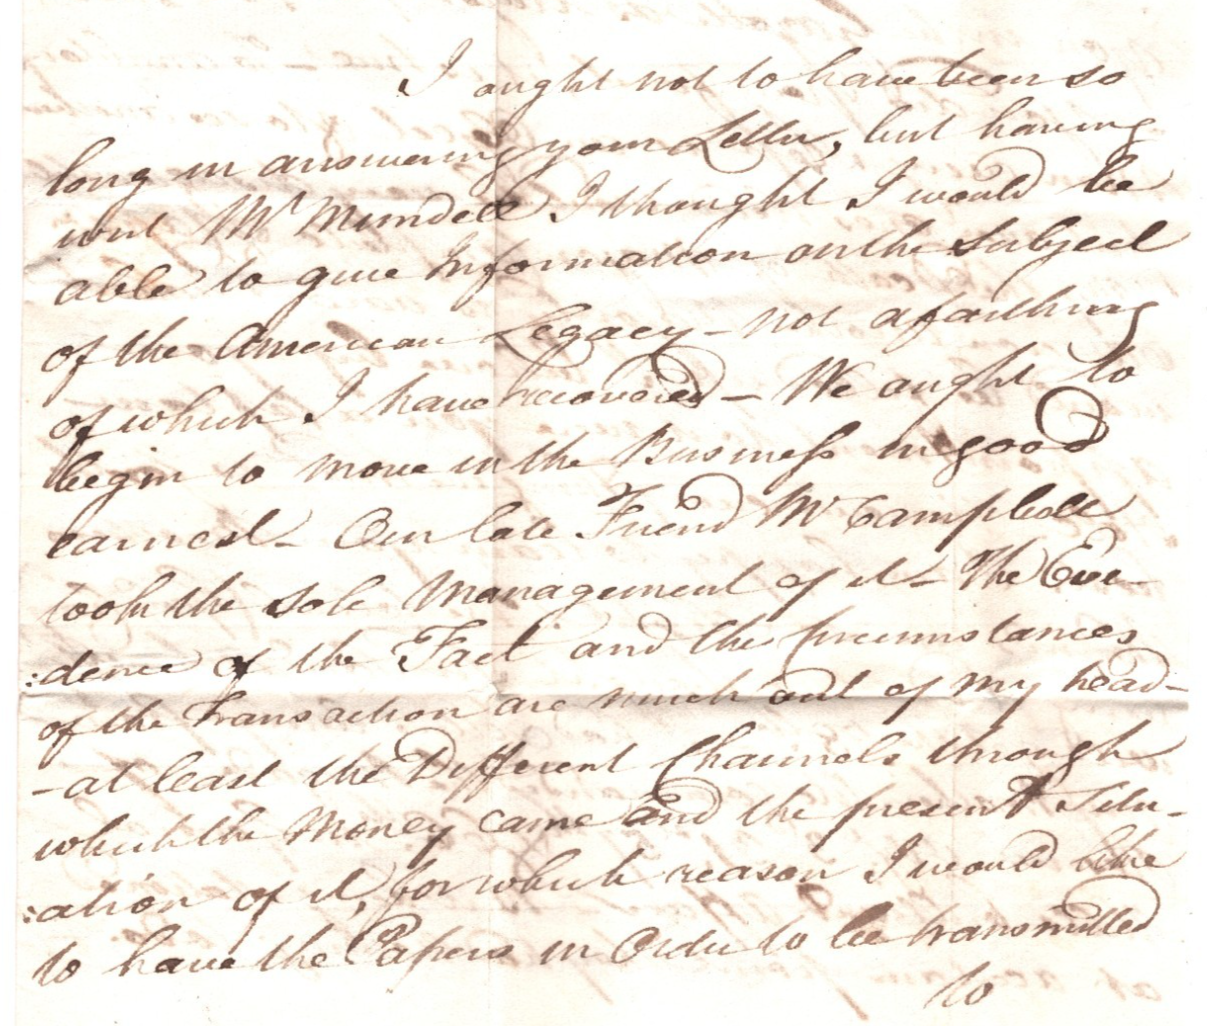 I ought not to have been so
long in answering your Letter, but having
writ Mr Mundell I thought I would be
able to give Information on the Subject
of the American Legacy – not a farthing
of which I have recovered – We ought to
begin to move in the Business in good
earnest – Our late Friend Mr Campbell
took the sole Management of it – The Evi-
:dence of the Fact and the circumstances
of the Transaction are much out of my head –
– at least the Different Channels through
which the Money came and the present Situ-
:ation of it, for which reason I would like
to have the Papers in Order to be transmitted
to